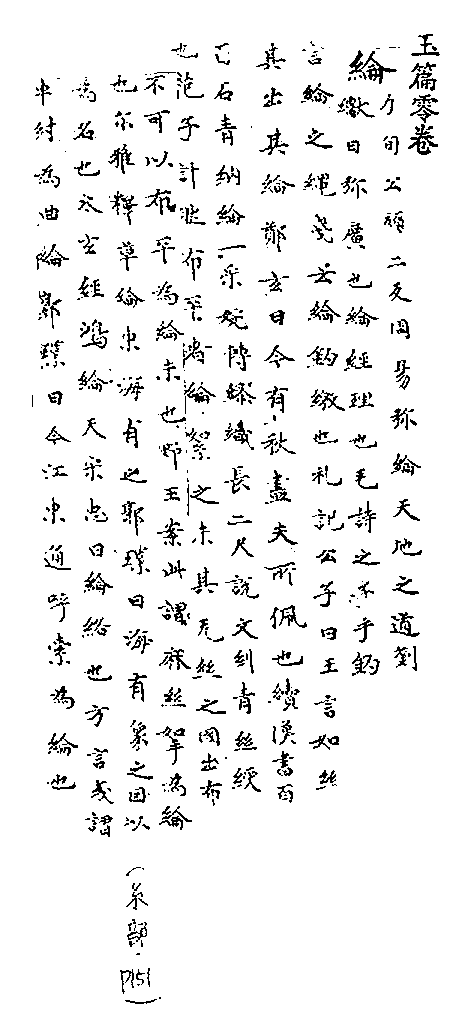 玉篇零卷
綸 力旬公頑二反周易弥綸天地之道劉
瓛曰弥廣也綸經理也毛詩之子于釣
言綸之繩箋云綸釣繳也礼記公子曰王言如絲
其出其綸鄭玄曰今有秩嗇夫所佩也續漢書百
石青紺綸一采婉轉繆織長二尺說文糾青絲綬
也范子計然布平者綸絮之未其无絲之國出布
不可以布平為綸未也野王案此謂麻絲如手為綸
也尔雅釋草綸東海有之郭璞曰海有象之因以
為名也太玄經鴻綸天宋忠曰綸絡也方言或謂
車紂為曲綸郭璞曰今江東通呼索為綸也
（糸部·P151）